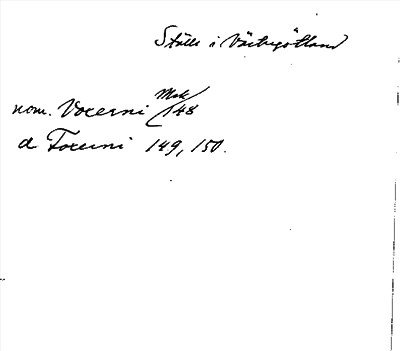 Ställe i Västergötland
nom. Vocerni Msk/148
d Focerni 149, 150.